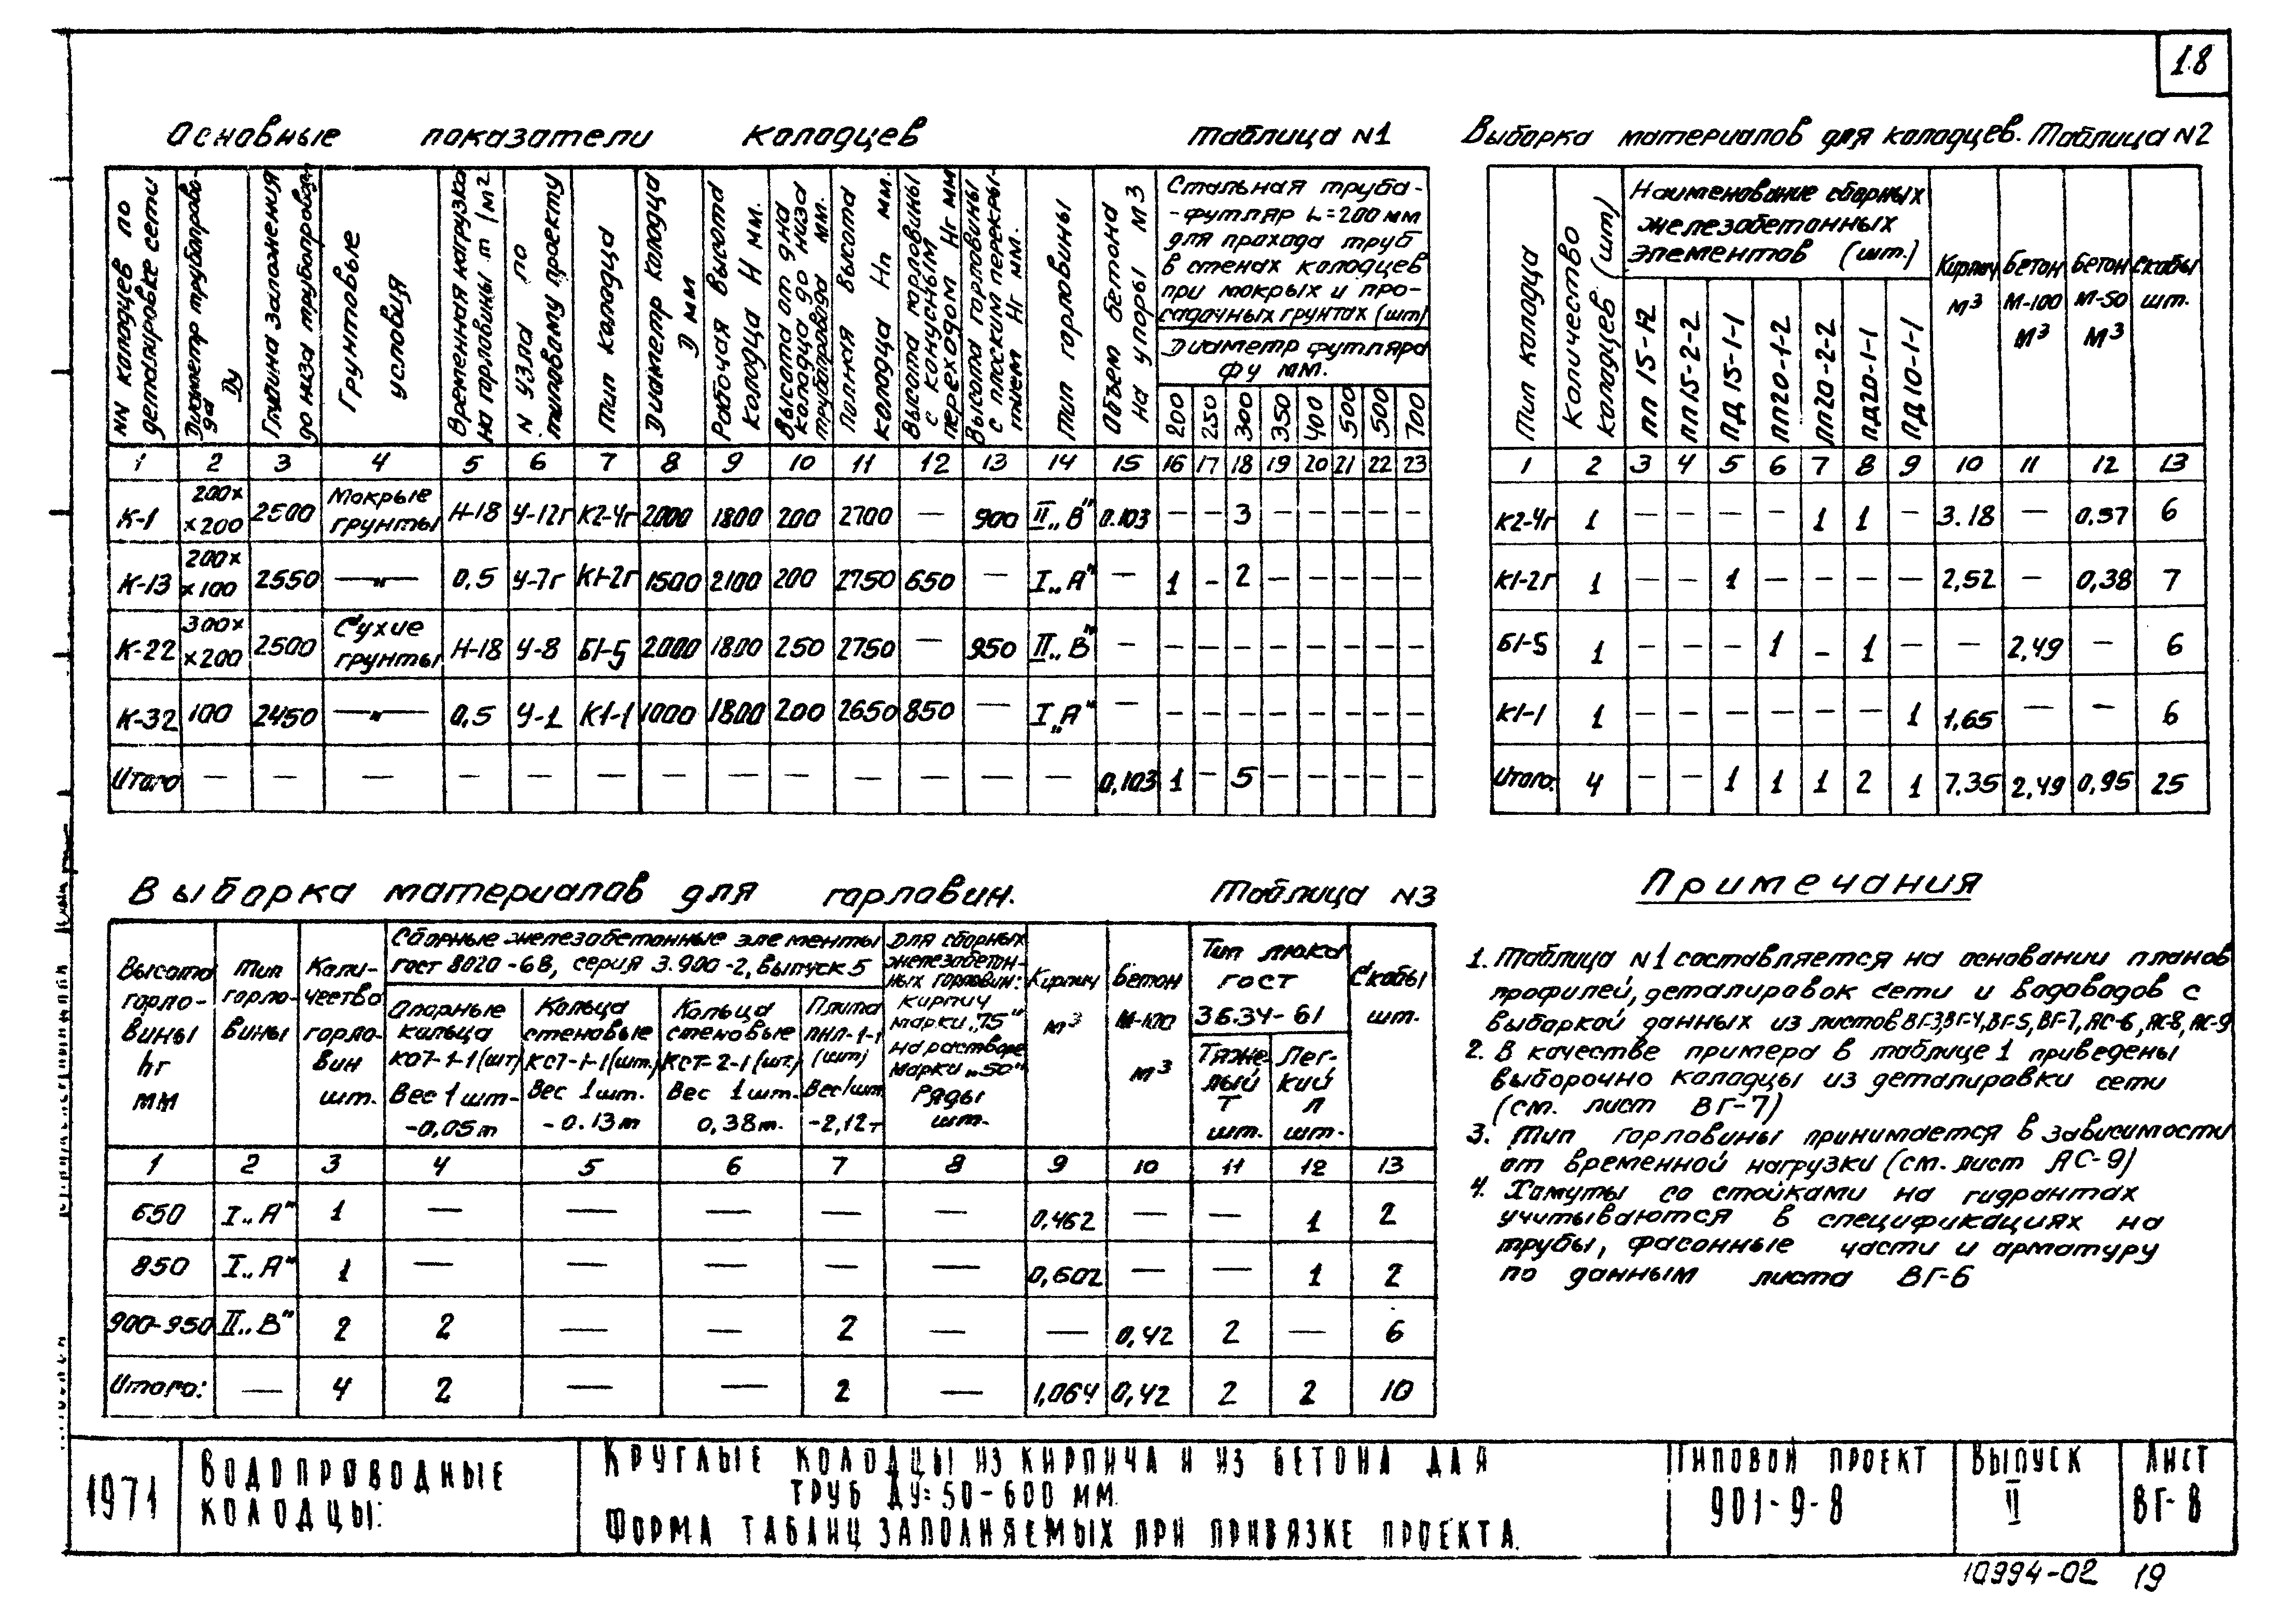 18
Основные показатели колодцев Таблица N1
NN колодцев по деталировке сети
Диаметр трубопровода Ду
Глубина заложения до низа трубопровода
Грунтовые условия
Временная нагрузка на горловины т/м2
N узла по типовому проекту
Тип колодца
Диаметр колодца D мм
Рабочая высота колодца H мм.
Высота от дна колодца до низа трубопровода мм.
Полная высота колодца Hп мм.
Высота горловины с конусным переходом Hг мм
Высота горловины с плоским перекрытием Hг мм.
Тип горловины
Объем бетона на упоры м3
Стальная труба-
-футляр L=200 мм
для прохода труб
в стенах колодцев
при мокрых и про-
садочных грунтах (шт)
Диаметр футляра
фу мм.
200 250 300 350 400 500 500 700
1 2 3 4 5 6 7 8 9 10 11 12 13 14 15 16 17 18 19 20 21 22 23
К-1 200x x200 2500 Мокрые грунты Н-18 У-12г К2-4г 2000 1800 200 2700 — 900 II „В" 0.103 — — 3 — — — — —
К-13 200x x100 2550 —„— 0,5 У-7г К1-2г 1500 2100 200 2750 650 — I „А" — 1 - 2 — — — — —
К-22 300x x200 2500 Сухие грунты Н-18 У-8 Б1-5 2000 1800 250 2750 — 950 II „В" — — — — — — — — —
К-32 100 2450 —„— 0,5 У-1 К1-1 1000 1800 200 2650 850 — I „А" — — — — — — — — —
Итого — — — — — — — — — — — — — 0,103 1 — 5 — — — — —
Выборка материалов для колодцев. Таблица N2
Тип колодца
Количество колодцев (шт)
Наименование сборных
железобетонных
элементов (шт.)
ПП 15-12
ПП15-2-2
ПД 15-1-1
ПП20-1-2
ПП20-2-2
ПД20-1-1
ПД10-1-1
Кирпич м3
Бетон М-100 м3
Бетон М-50 м3
Скобы шт.
1 2 3 4 5 6 7 8 9 10 11 12 13
К2-4г 1 — — — — 1 1 — 3.18 — 0,57 6
К1-2г 1 — — 1 — — — — 2,52 — 0,38 7
Б1-5 1 — — — 1 — 1 — — 2,49 — 6
К1-1 1 — — — — — — 1 1,65 — — 6
Итого: 4 — — 1 1 1 2 1 7.35 2,49 0,95 25
Выборка материалов для горловин. Таблица N3
Высота горло-вины hг мм
Тип горло-вины
Коли-чество горло-вин шт.
Сборные железобетонные элементы
гост 8020-68, серия 3.900-2, выпуск 5
Опорные кольца КО7-1-1 (шт) Вес 1 шт- -0,05т
Кольца стеновые КС7-1-1 (шт.) Вес 1шт. -0.13т
Кольца стеновые КС7-2-1 (шт.) Вес 1шт. 0,38т.
Плита ПНЛ-1-1 (шт) Вес 1шт -2,12т
Для сборных железобетон-ных горловин: кирпич марки „75" на растворе марки „50" Ряды шт.
Кирпич м3
Бетон М-100 м3
Тип люка
гост
3634-61
Тяже-лый Т шт.
Лег-кий Л шт.
Скобы шт.
1 2 3 4 5 6 7 8 9 10 11 12 13
650 I „А" 1 — — — — — 0,462 — — 1 2
850 I „А" 1 — — — — — 0,602 — — 1 2
900-950 II „В" 2 2 — — 2 — — 0,42 2 — 6
Итого: — 4 2 — — 2 — 1,064 0,42 2 2 10
Примечания
1. Таблица N1 составляется на основании планов
профилей, деталировок сети и водоводов с
выборкой данных из листов ВГ-3, ВГ-4, ВГ-5, ВГ-7, АС-6, АС-8, АС-9
2. В качестве примера в таблице 1 приведены
выборочно колодцы из деталировки сети
(см. лист ВГ-7)
3. Тип горловины принимается в зависимости
от временной нагрузки (см. лист АС-9)
4. Хомуты со стойками на гидрантах
учитываются в спецификациях на
трубы, фасонные части и арматуру
по данным листа ВГ-6
1971
Водопроводные
колодцы:
Круглые колодцы из кирпича и из бетона для
труб Ду=50-600 мм.
Форма таблиц заполняемых при привязке проекта.
Типовой проект
901-9-8
Выпуск
II
Лист
ВГ-8
10994-02 19